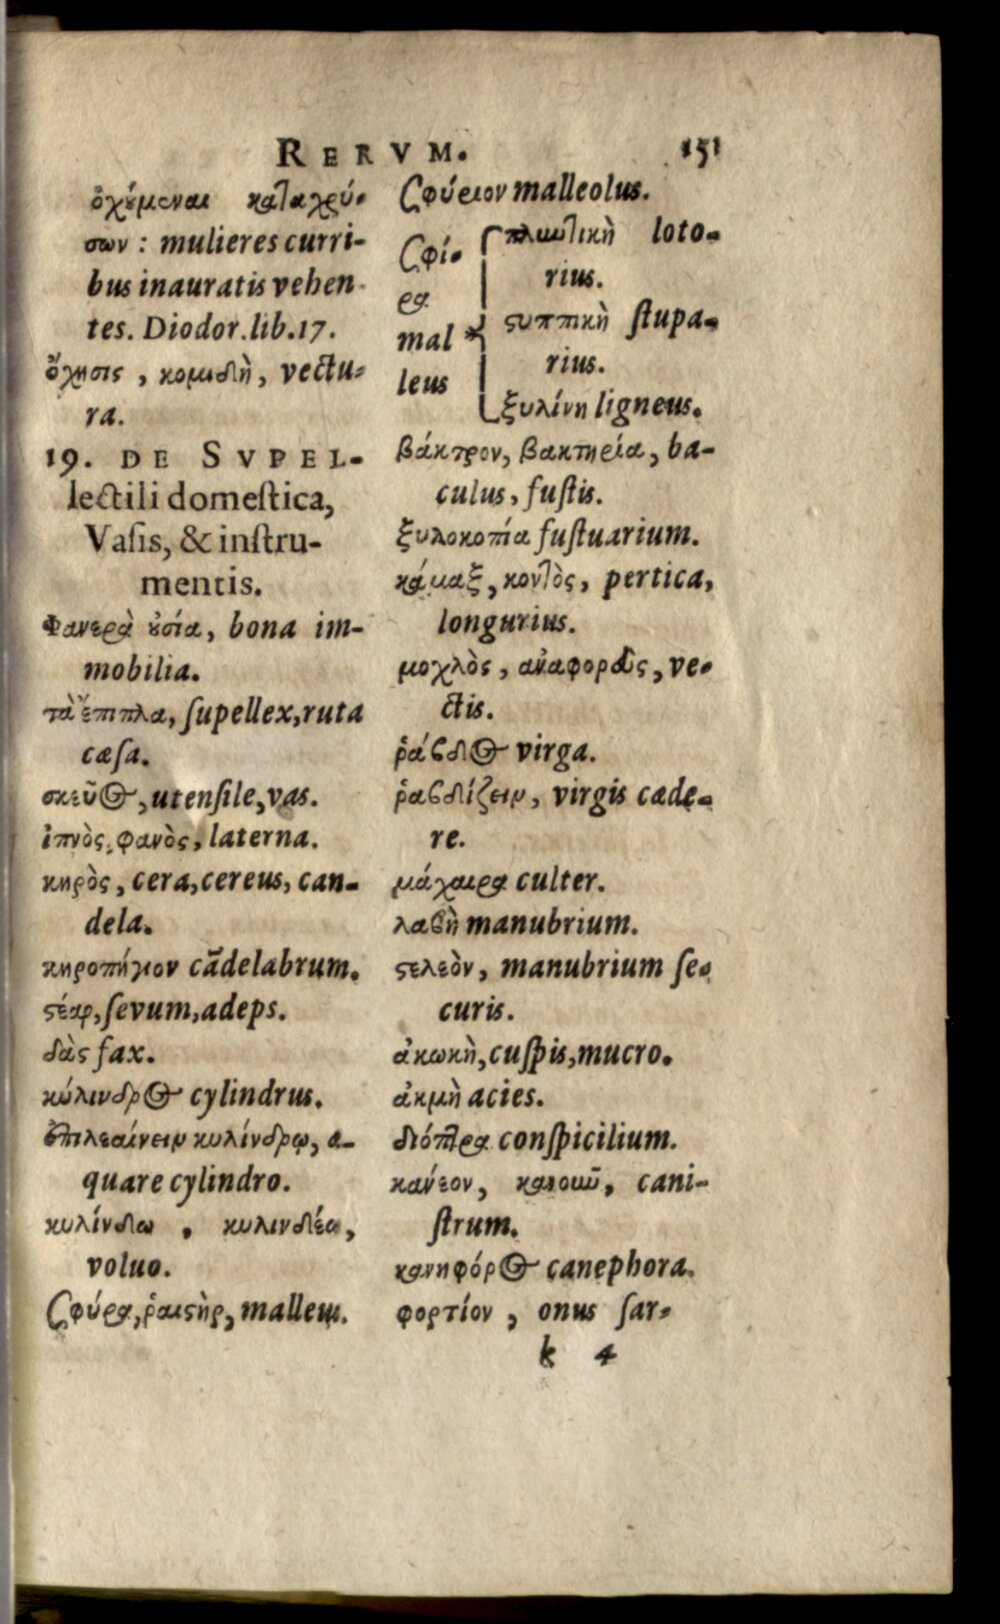 RERVM. 151
ὀχούμεναι καταχρύ-
σων : mulieres curri-
bus inauratis vehen-
tes. Diodor. lib. 17.
ὄχησις, κομιδὴ, vectu-
ra.
19. DE SVPEL-
lectili domestica,
Vasis, & instru-
mentis.
Φανερὰ οὐσία, bona im-
mobilia.
τὰ ἔπιπλα, supellex, ruta
cæsa.
σκεῦος, utensile, vas.
ἰπνὸς, φανὸς, laterna.
κηρὸς, cera, cereus, can-
dela.
κηροπήγιον cãdelabrum.
στέαρ, sevum, adeps.
δὰς fax.
κύλινδρος cylindrus.
ἐπιλεαίνειν κυλίνδρῳ, æ-
quare cylindro.
κυλίνδω, κυλινδέω,
voluo.
σφύρα, ῥαιστὴρ, malleus.
σφύριον malleolus.
σφύ-
ρα
mal
leus
πλυντικὴ loto-
rius.
στυππικὴ stupa-
rius.
ξυλίνη ligneus.
βάκτρον, βακτηρία, ba-
culus, fustis.
ξυλοκοπία fustuarium.
κάμαξ, κοντὸς, pertica,
longurius.
μοχλὸς, ἀναφορεὺς, ve-
ctis.
ῥάβδος virga.
ῥαβδίζειν, virgis cæde-
re.
μάχαιρα culter.
λαβὴ manubrium.
στελεὸν, manubrium se-
curis.
ἀκωκὴ, cuspis, mucro.
ἀκμὴ acies.
διόπτρα conspicilium.
κάνεον, κανοῦν, cani-
strum.
κανηφόρος canephora.
φορτίον, onus sar-
k 4